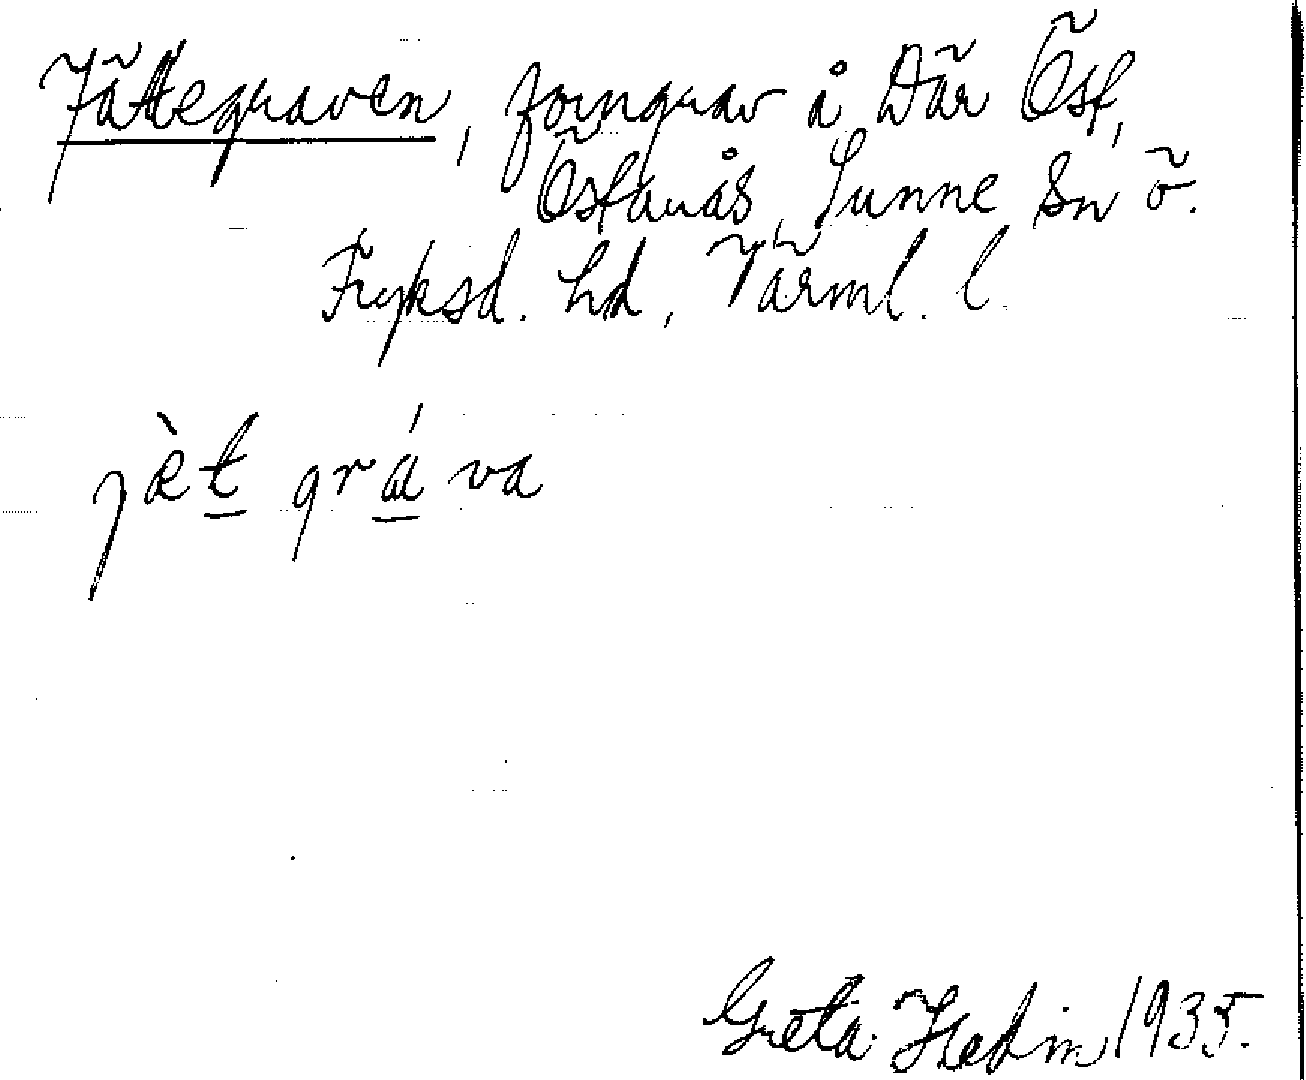 Jättegraven, forngrav å Där Öst,
Östanås, Sunne sn ö.
Fryksd. hd, Värml. l.
jæ̀t grá va
Greta Hedin 1935.